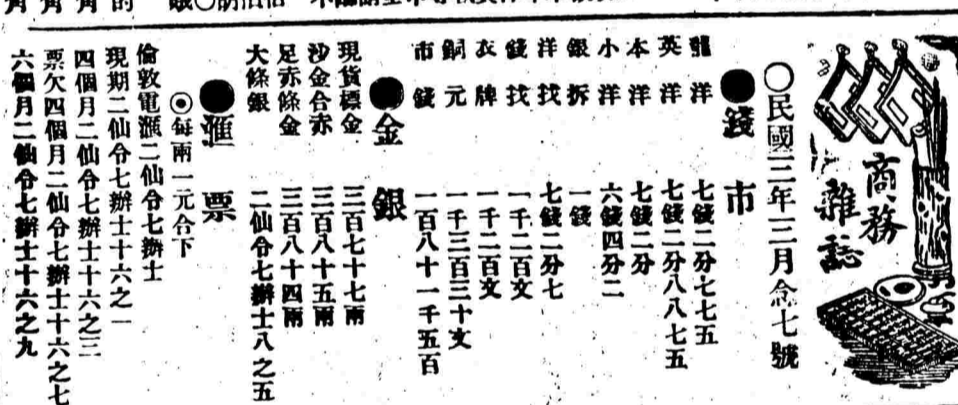 商務
雜誌
○民國三年三月念七號
●錢市
龍洋 七錢二分七七五
英洋 七錢二分八八七五
本洋 七錢二分
小洋 六錢四分二
銀拆 一錢
洋找 七錢二分七
錢找 一千二百文
衣牌 一千二百文
銅元 一千三百三十文
市錢 一百八十一千五百
●金銀
現貨標金 三百七十七兩
沙金合赤 三百八十五兩
足赤條金 三百八十四兩
大條銀 二仙令七辦士八之五
●匯票
◉每兩一元合下
倫敦電滙二仙令七辦士
現期二仙令七辦士十六之一
四個月二仙令七辦士十六之三
票欠四個月二仙令七辦士十六之七
六個月二仙令七辦士十六之九